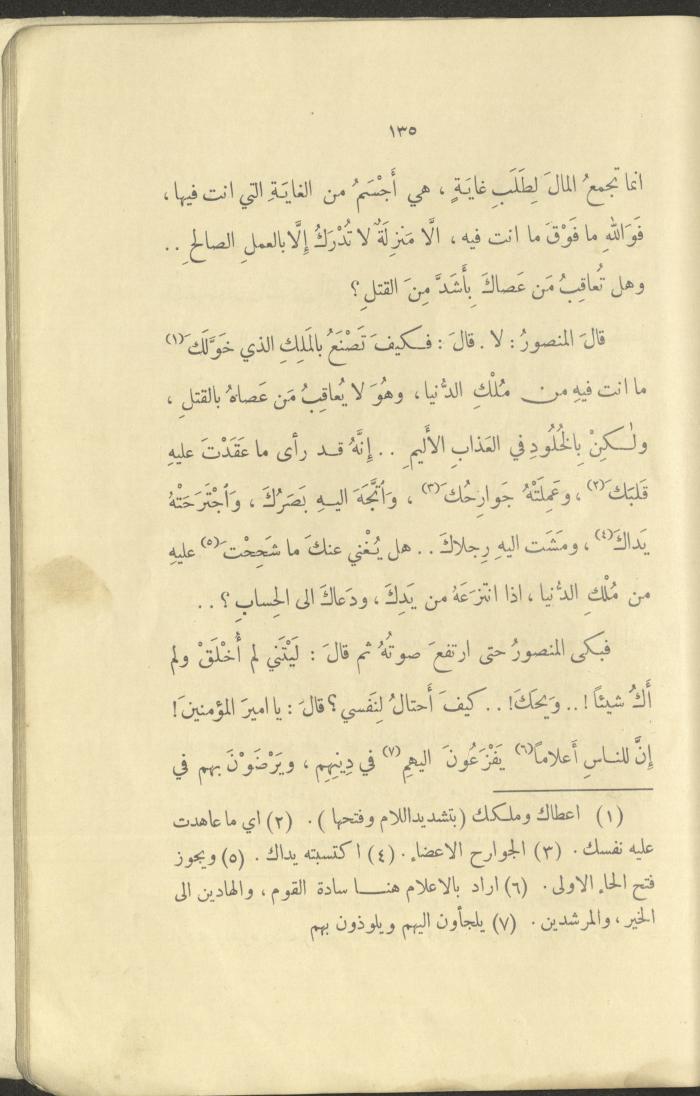 ١٣٥
انما تجمعُ المالَ لِطَلَبِ غايَةٍ ، هي أَجْسَمُ من الغايَةِ التي انت فيها ،
فَوَاللهِ ما فَوْقَ ما انت فيه ، الَّا مَنزِلَةٌ لا تُدْرَكُ إلَّا بالعملِ الصالحِ ..
وهل تُعاقِبُ مَن عَصاكَ بِأَشَدَّ مِنَ القتلِ ؟
قالَ المنصورُ : لا . قالَ : فـكيفَ تَصْنَعُ بالمَلِكِ الذي خَوَّلَكَ (١)
ما انت فيهِ من مُلْكِ الدُّنيا ، وهُوَ لا يُعاقِبُ مَن عَصاهُ بالقتلِ ،
ولٰـكِنْ بِالخُلُودِ في العَذابِ الأَليمِ .. إِنَّهُ قد رأى ما عَقَدْتَ عليهِ
قَلبَكَ (٢) ، وعَمِلَتْهُ جَوارِحُكَ (٣) ، وَٱتَّجَهَ اليهِ بَصَرُكَ ، وَٱجْتَرَحَتْهُ
يَداكَ (٤) ، ومَشَت اليهِ رِجلاكَ .. هل يُغْني عنكَ ما شَحِحْتَ (٥) عليهِ
من مُلْكِ الدُّنيا ، اذا انتزَعَهُ من يَدِكَ ، ودَعاكَ الى الحِسابِ ؟ ..
فبكى المنصورُ حتى ارتفعَ صوتُهُ ثم قالَ : لَيْتَني لم أُخْلَقْ ولم
أَكُ شيئاً ! .. وَيحَكَ ! .. كيفَ أَحتالُ لِنَفسي ؟ قالَ : يا اميرَ المؤمنينَ !
إِنَّ للناسِ أَعلاماً (٦) يَفْزَعُونَ اليهمِ (٧) في دِينِهِمِ ، ويَرْضَوْنَ بهم في
(١) اعطاك وملـكك (بتشديد اللام وفتحها ) . (٢) اي ما عاهدت
عليه نفسك . (٣) الجوارح الاعضاء . (٤) اكتسبته يداك . (٥) ويجوز
فتح الحاء الاولى . (٦) اراد بالاعلام هنا سادة القوم ، والهادين الى
الخير ، والمرشدين . (٧) يلجأون اليهم ويلوذون بهم